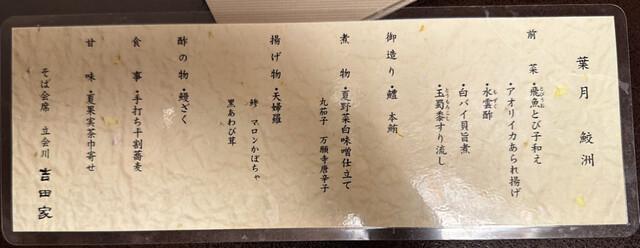 葉月 鮫洲
前菜・飛魚とび子和え
・アオリイカあられ揚げ
・水雲酢
・白バイ貝旨煮
・玉蜀黍すり流し
御造り・鱧 本鮪
煮物・夏野菜白味噌仕立て
丸茄子 万願寺唐辛子
揚げ物・天婦羅
鱚 マロンかぼちゃ
黒あわび茸
酢の物・鰻ざく
食事・手打ち十割蕎麦
甘味・夏果実茶巾寄せ
そば会席 立会川 吉田家